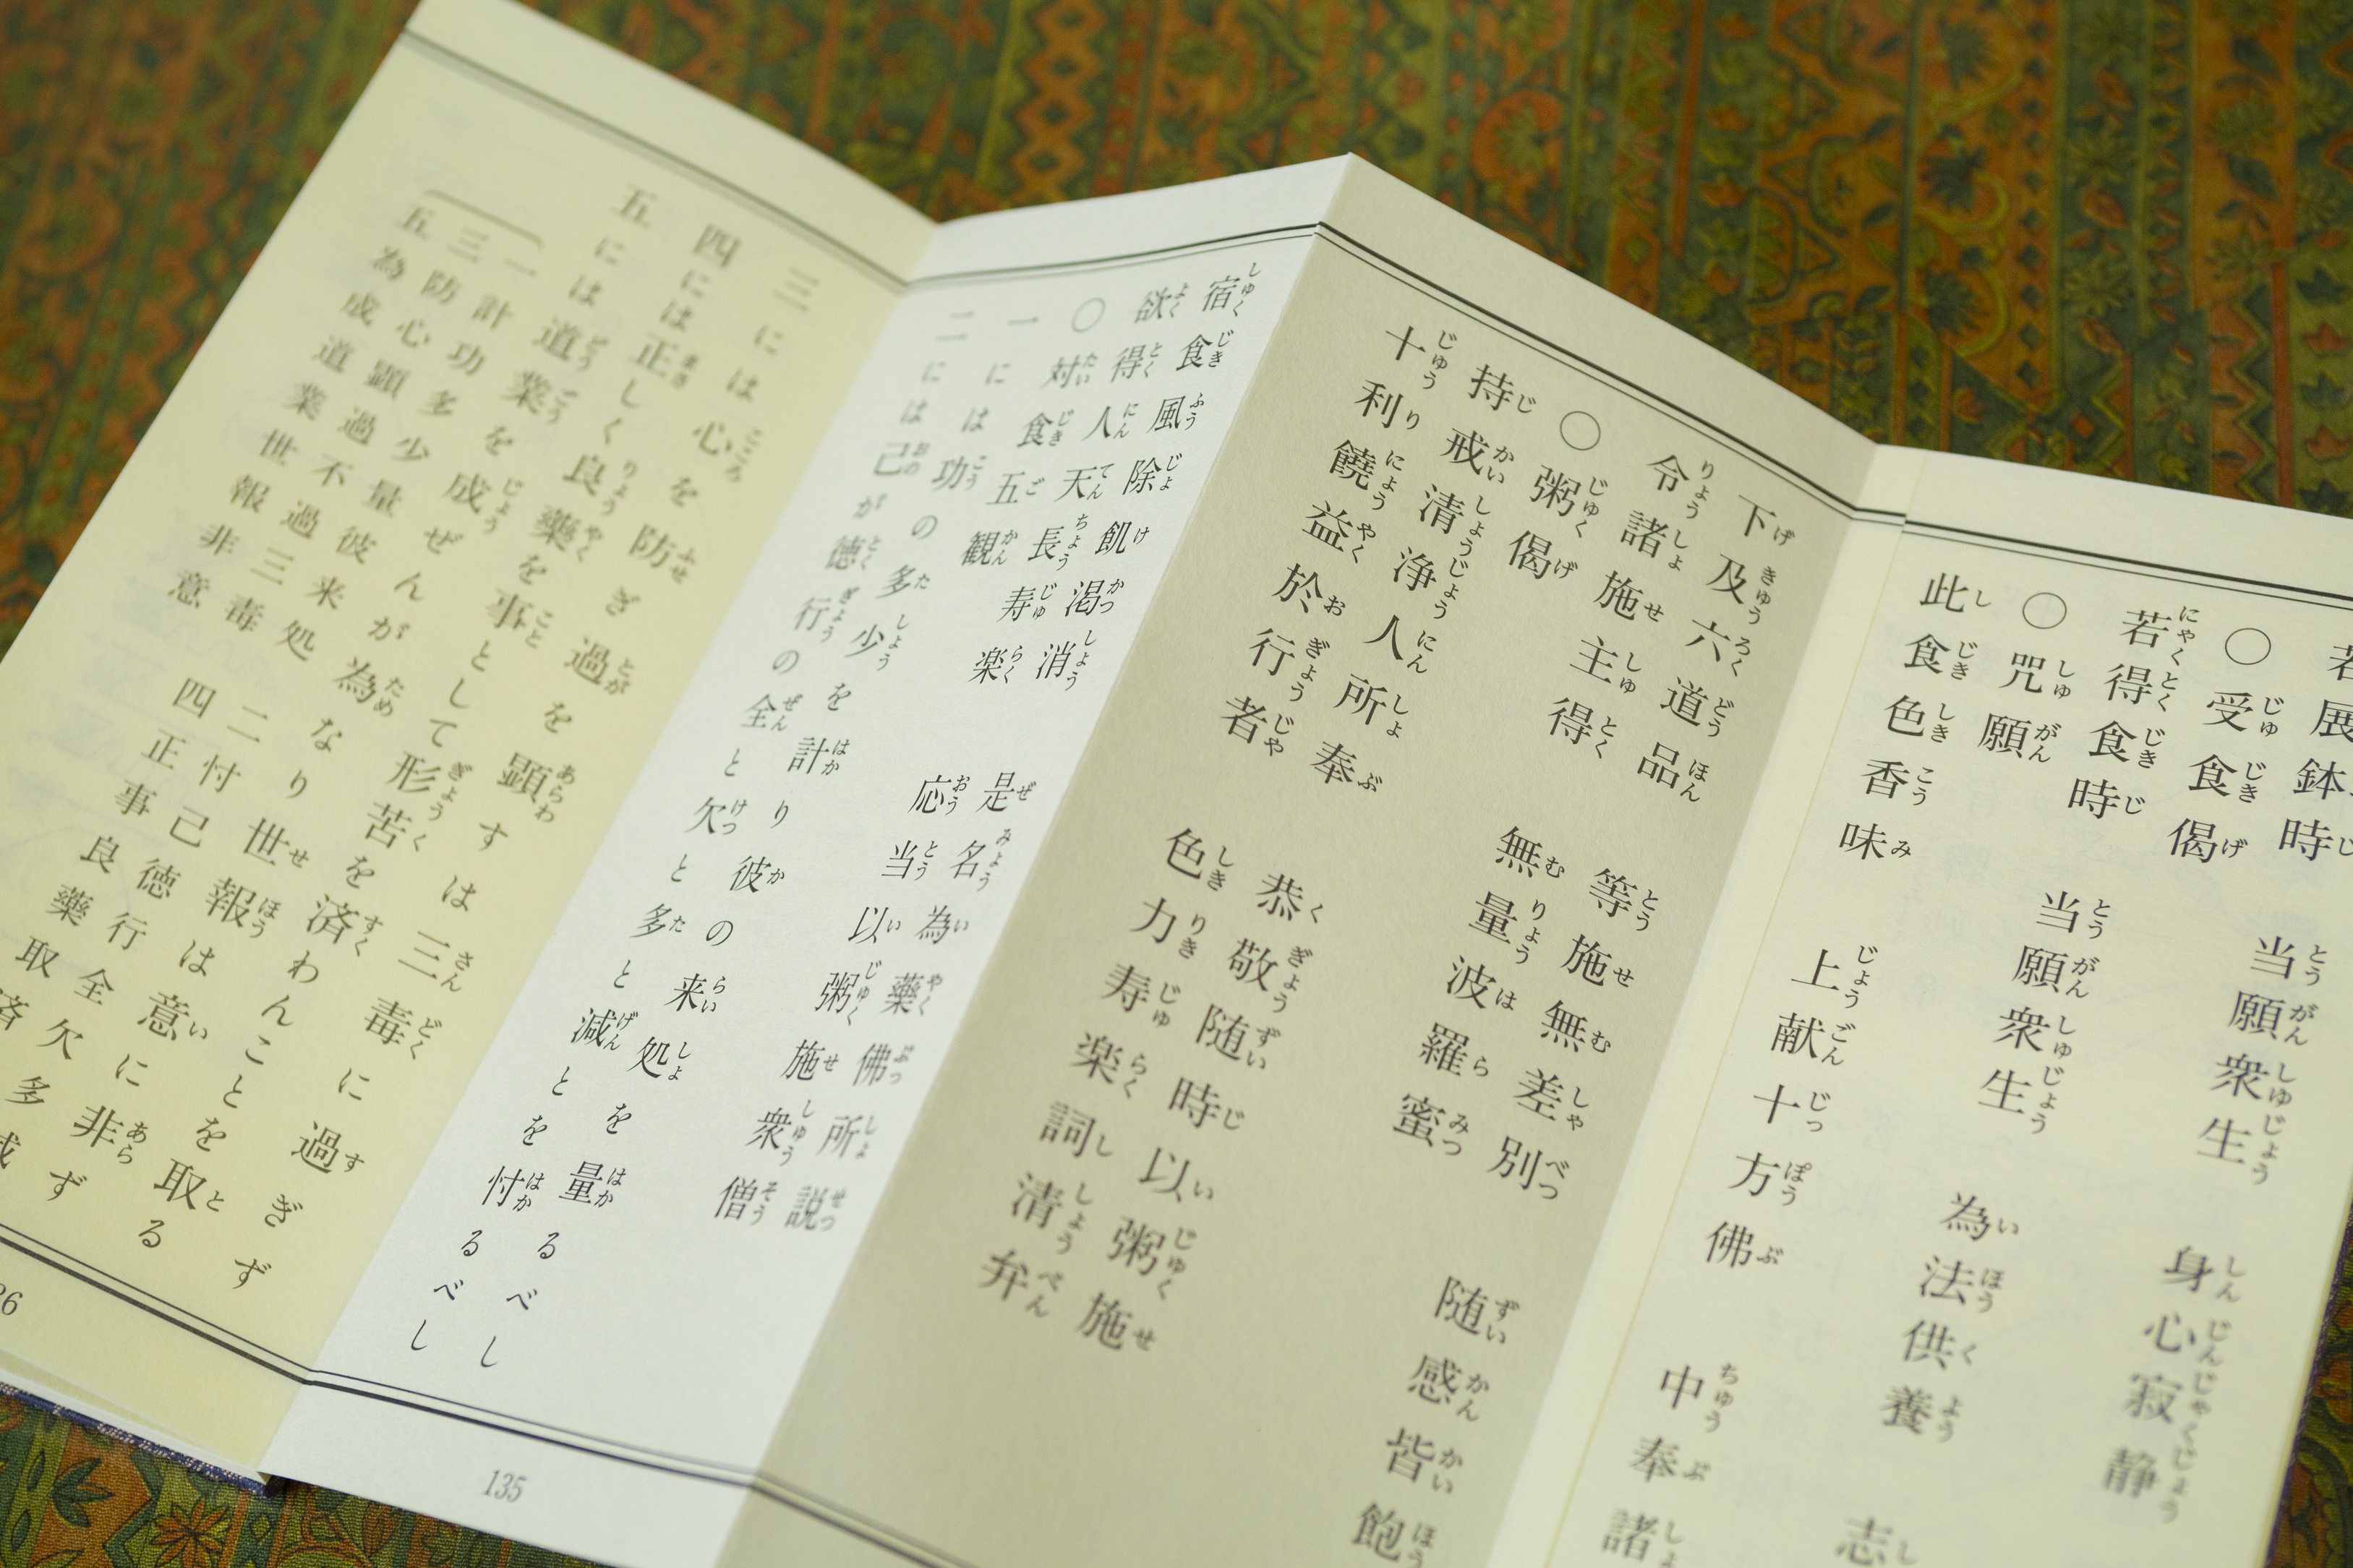 若展鉢時　当願衆生　身心寂静
○受食偈
若得食時　当願衆生　為法供養　志
○咒願
此食色香味　上献十方佛　中奉諸
下及六道品　等施無差別　随感皆飽
令諸施主得　無量波羅蜜
○粥偈
持戒清浄人所奉　恭敬随時以粥施
十利饒益於行者　色力寿楽詞清弁
宿食風除飢渇消　是名為藥佛所説
欲得人天長寿楽　応当以粥施衆僧
○対食五観
一には功の多少を計り彼の来処を量るべし
二には己が徳行の全と欠と多と減とを忖るべし
135
三には心を防ぎ過を顕すは三毒に過ぎず
四には正しく良藥を事として形苦を済わんことを取る
五には道業を成ぜんが為なり世報は意に非ず
一計功多少量彼来処　二忖己徳行全欠多減
三防心顕過不過三毒　四正事良藥取済
五為成道業世報非意